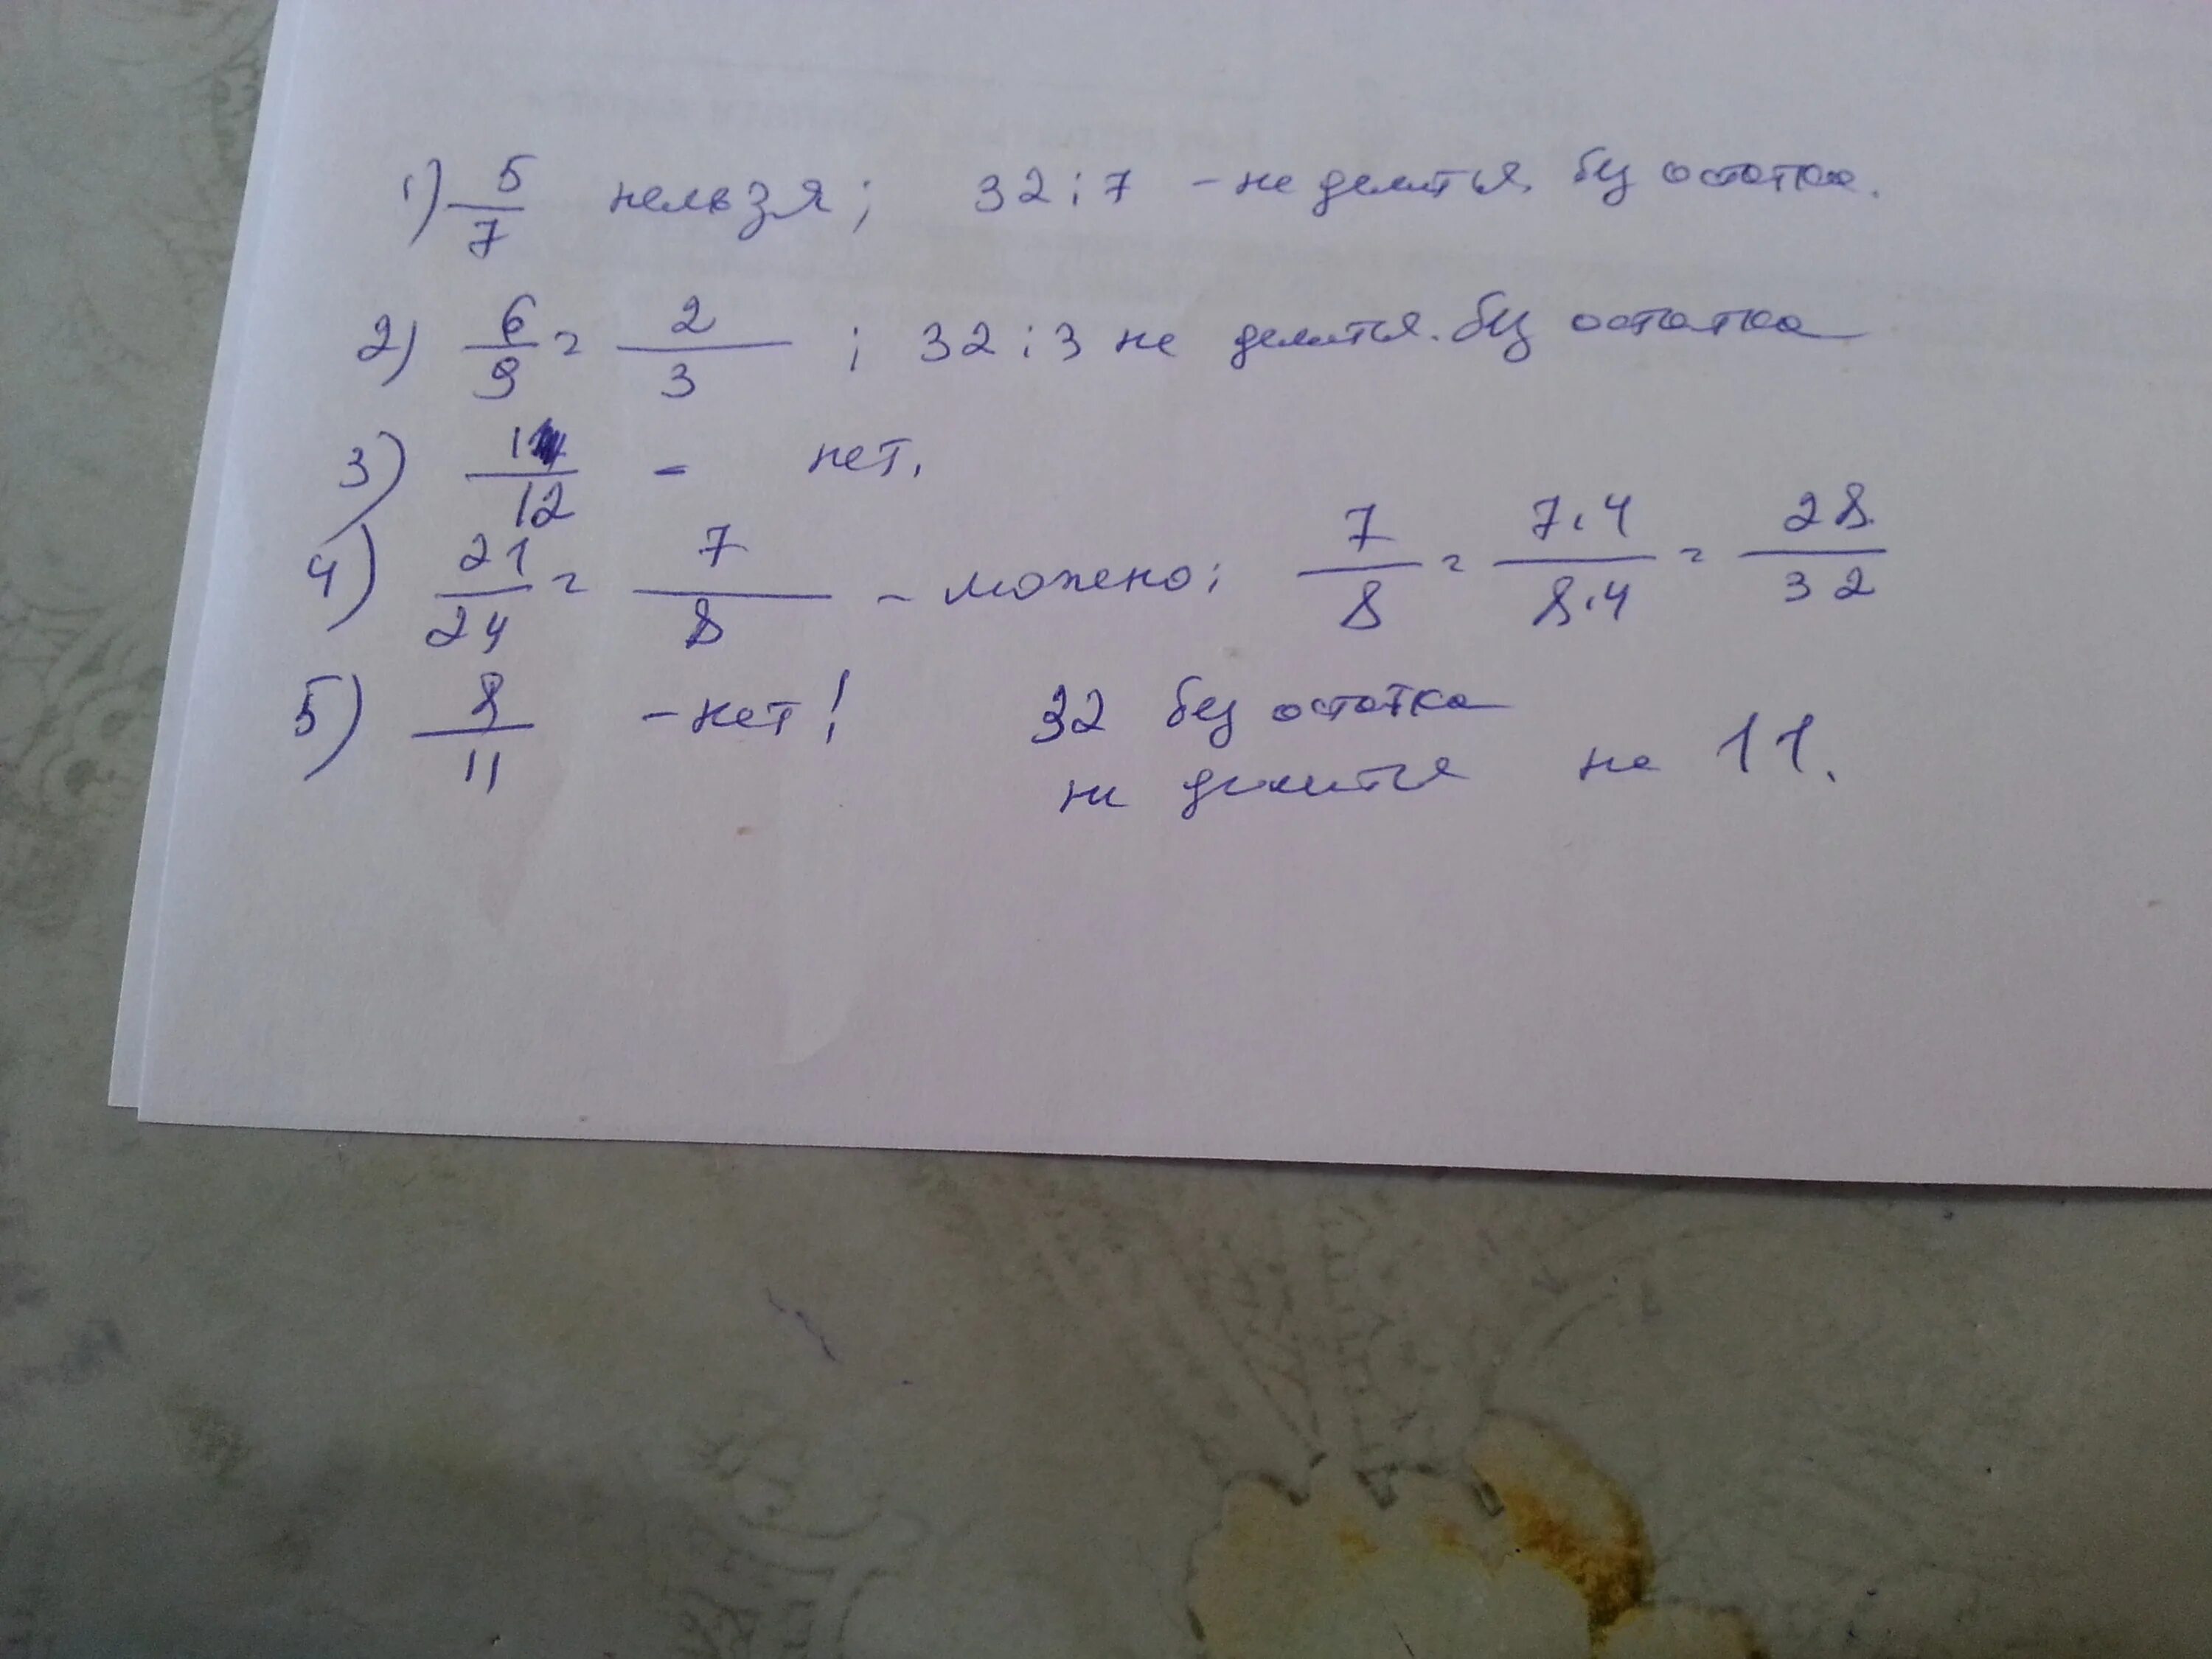 1) 5/7 нельзя; 32 : 7 - не делится без остатка.
2) 6/9 = 2/3 ; 32 : 3 не делится без остатка
3) 1/12 - нет.
4) 21/24 = 7/8 - можно; 7/8 = 7·4/8·4 = 28/32
5) 8/11 - нет! 32 без остатка
не делится на 11.